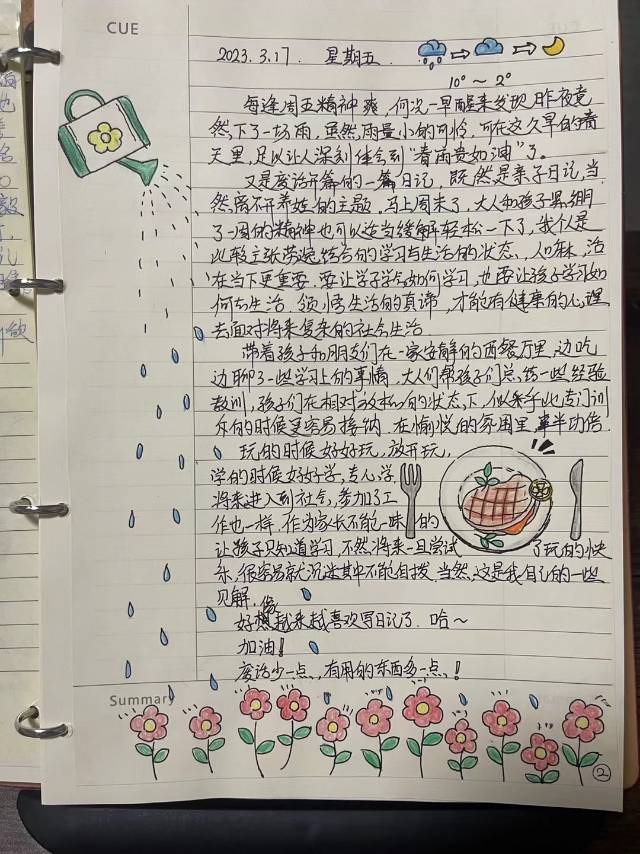 CUE
2023.3.17. 星期五
10° ~ 2°
每逢周五精神爽,何况一早醒来发现昨夜竟
然下了一场雨,虽然雨量小的可怜,可在这久旱的春
天里,足以让人深刻体会到“春雨贵如油”了。
又是废话开篇的一篇日记,既然是亲子日记,当
然离不开养娃的主题。马上周末了,大人和孩子紧绷
了一周的精神也可以适当缓解轻松一下了,我个人是
比较主张劳逸结合的学习与生活的状态。人们嘛,活
在当下更重要,要让学子学会如何学习,也要让孩子学习如
何去生活,领悟生活的真谛,才能有健康的心理
去面对将来复杂的社会生活
带着孩子和朋友们在一家安静的西餐厅里,边吃
边聊了一些学习上的事情,大人们帮孩子们总结一些经验
教训,孩子们在相对放松的状态下,似乎比专门训
斥的时候更容易接纳,在愉悦的氛围里,事半功倍.
玩的时候好好玩,放开玩,
学的时候好好学,专心学,
将来进入到社会,参加了工
作也一样,作为家长不能一味的
让孩子只知道学习,不然将来一旦尝试了玩的快
乐,很容易就沉迷其中不能自拔,当然,这是我自己的一些
见解.
好像越来越喜欢写日记了.哈~
加油!
废话少一点、有用的东西多一点、!
Summary
②